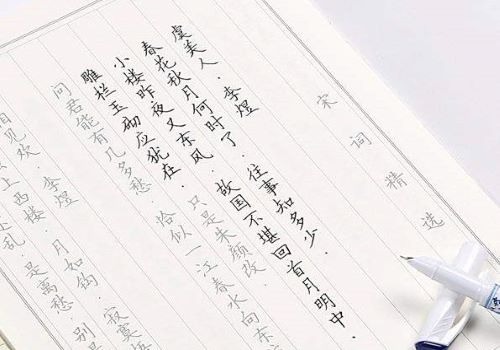 宋词精选
虞美人·李煜
春花秋月何时了·往事知多少·
小楼昨夜又东风·故国不堪回首月明中·
雕栏玉砌应犹在·只是朱颜改·
问君能有几多愁 恰似一江春水向东
见欢·李煜
上西楼·月如钩·寂寞
乱·是离愁·别是